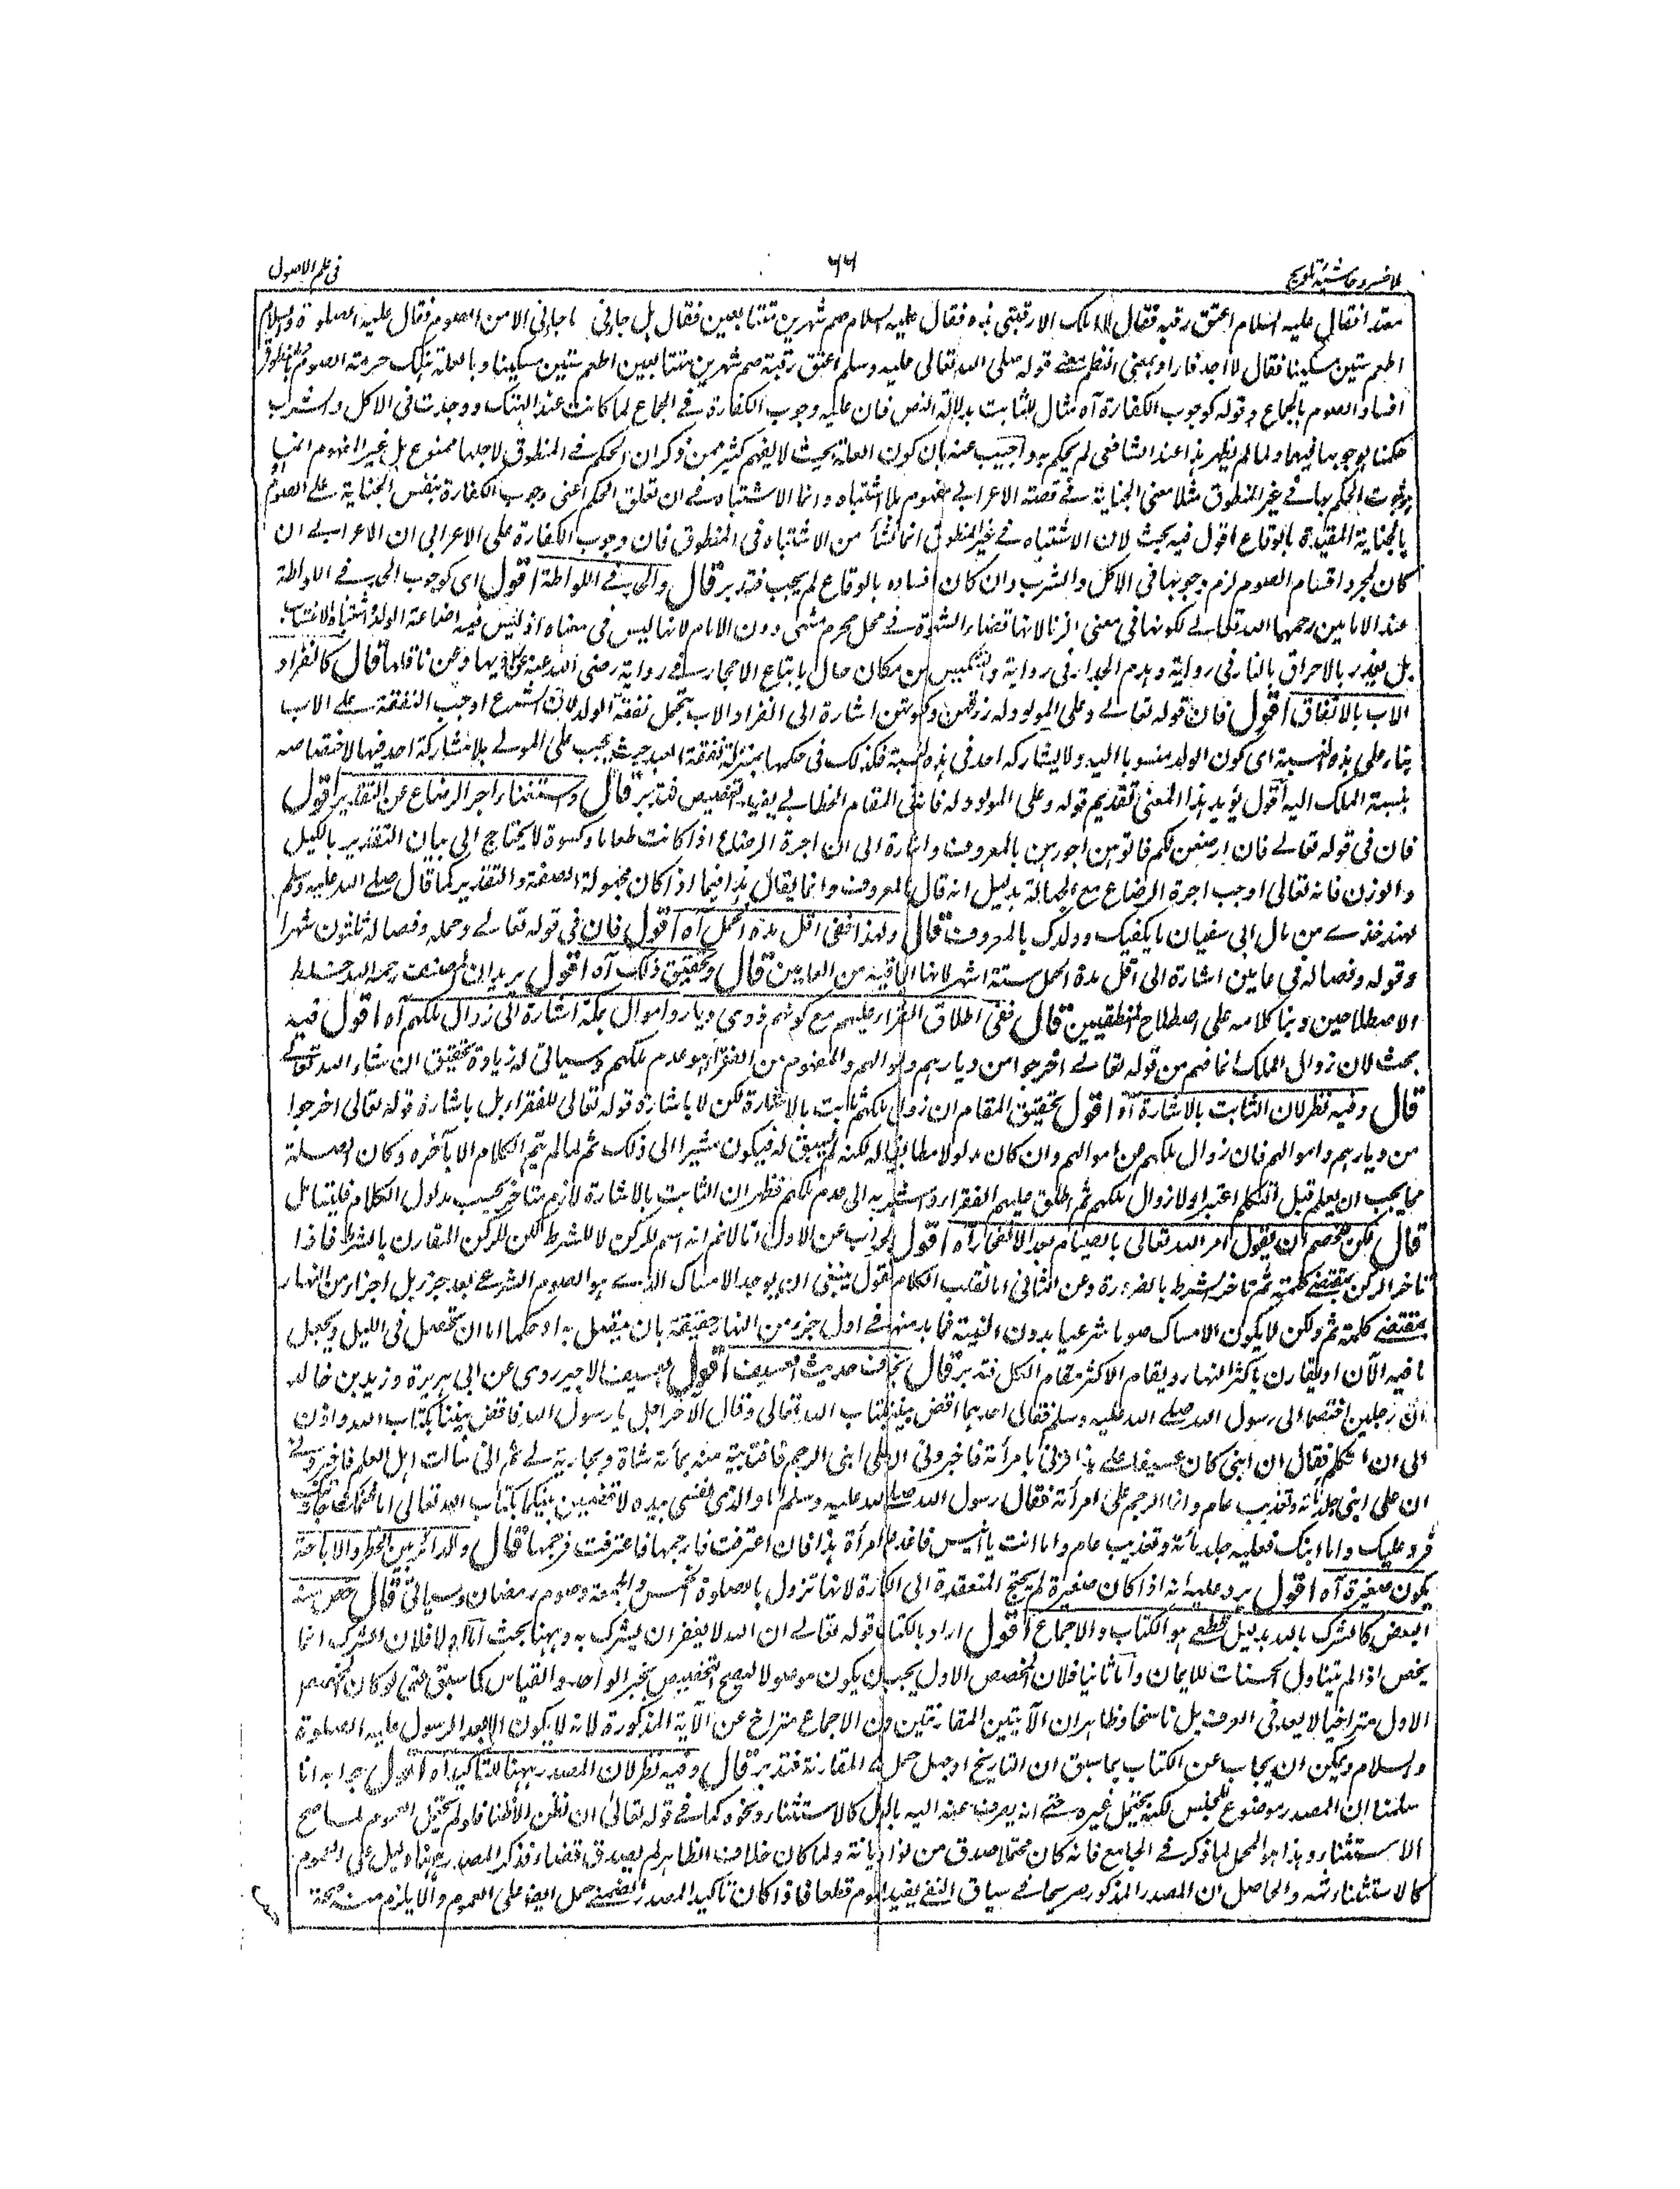 ملا خسرو حاشیۃ تلویح
۶۶
فی علم الاصول
متعمدا فقال علیہ السلام اعتق رقبة فقال لا املک الا رقبتی ہذہ فقال علیہ السلام صم شہرین متتابعین فقال ہل جاءنی ما جاءنی الا من الصوم فقال علیہ الصلوة والسلام
اطعم ستین مسکینا فقال لا اجد فاراد بمعنی النظم معنی قولہ صلی اللہ تعالی علیہ وسلم اعتق رقبة صم شہرین متتابعین اطعم ستین مسکینا وبالعلة ہتک حرمة الصوم
افساد الصوم بالجماع وقولہ کوجوب الکفارة آہ مثال للثابت بدلالة النص فان علیہ وجوب الکفارة فے الجماع لما کانت عند الہتک ووجدت فی الاکل والشرب
حکمنا بوجوبہا فیہما ولما لم یظہر ہذا عند الشافعی لم یحکم بہ واجیب عنہ بان کون العلة بحیث لا یفہم کثیر ممن ذکر ان الحکم فے المنطوق لاجلہا ممنوع بل غیر المفہوم انہا
ثبوت الحکم بہا فے غیر المنطوق مثلا معنی الجنایة فے قصة الاعرابے مفہوم بلا اشتباہ وانما الاشتباہ فے ان تعلق الحکم اعنی وجوب الکفارة بنفس الجنایة علے الصوم
بالجنایة المقیدة بالوقاع اقول فیہ بحث لان الاشتباہ فے غیر المنطوق انما نشأ من الاشتباہ فی المنطوق فان وجوب الکفارة علی الاعرابی ان الاعرابے ان
کان لمجرد اقتسام الصوم لزم وجوبہا فی الاکل والشرب وان کان افسادہ بالوقاع لم یجب فتدبر قال والحد فے اللواطة اقول ای کوجوب الحد فے اللواطة
عند الامامین رحمہما اللہ تعالے لکونہا فی معنی الزنا لانہا قضاء الشہوة فے محل محرم مشتہی دون الامام لانہا لیس فی معناہ اذ لیس فیہ اضاعة الولد واشتباہ الانساب
بل یعذر بالاحراق بالنار فی روایة وہدم الجدار فی روایة والتنکیس من مکان عال باتباع الاحجار فے روایة رضی اللہ عنہ قال کانفراد
الاب بالاتفاق اقول فان قولہ تعالے وعلی المولود لہ رزقہن وکسوتہن اشارة الی انفراد الاب بتحمل نفقة الولد لان الشرع اوجب النفقة علے الاب
بناء علی ہذہ النسبة ای کون الولد منسوبا الیہ ولا یشارکہ احد فی ہذہ النسبة فکذلک فی حکمہا بمنزلة نفقة العبد حیث یجب علی المولے بلا مشارکة احد فیہا لاختصاصہ
بنسبة الملک الیہ اقول یؤید ہذا المعنی تقدیم قولہ وعلی المولود لہ فانہ فی المقام الخطابے یفید التخصیص فتدبر قال واستغناء اجر الرضاع عن التقدیر اقول
فان فی قولہ تعالے فان ارضعن لکم فاتوہن اجورہن بالمعروف واشارة الی ان اجرة الرضاع اذا کانت طعاما وکسوة لا یحتاج الی بیان التقدیر بالکیل
والوزن فانہ تعالی اوجب اجرة الرضاع مع الجہالة بدلیل انہ قال بالمعروف وانما یقال ہذا فیما اذا کان مجہولة الصفة والتقدیر کما قال صلے اللہ علیہ وسلم
لہند خذے من مال ابی سفیان ما یکفیک وولدک بالمعروف قال ولہذا ففی اقل مدة الحمل آہ اقول فان فی قولہ تعالے وحملہ وفصالہ ثلثون شہرا
وقولہ وفصالہ فی عامین اشارة الی اقل مدة الحمل ستة اشہر لانہا الباقیة من العامین قال وتحقیق ذلک آہ اقول یرید ان المصنف رحمہ اللہ خلط
الاصطلاحین وبنا کلامہ علی اصطلاح المنطقیین قال ففی اطلاق الفقراء علیہم مع کونہم ذوی دیار واموال بمکة اشارة الی زوال ملکہم آہ اقول فیہ
بحث لان زوال الملک انما فہم من قولہ تعالے اخرجوا من دیارہم واموالہم والمفہوم من الفقراء ہو عدم ملکہم وسیاتی لہ زیادة تحقیق ان شاء اللہ تعالے
قال وفیہ نظر لان الثابت بالاشارة آہ اقول تحقیق المقام ان زوال ملکہم ثابت بالاشارة لکن لا باشارة قولہ تعالی للفقراء بل باشارة قولہ تعالی اخرجوا
من دیارہم واموالہم فان زوال ملکہم عن اموالہم وان کان مدلولا مطابقیا لہ لکنہ لم یسق لہ فیکون مشیرا الی ذلک ثم لما لم یتم الکلام الا بآخرہ وکان الصلة
مما یجب ان یعلم قبل التکلم اعتبر اولا زوال ملکہم ثم اطلق علیہم الفقراء واشیر بہ الی عدم ملکہم فظہر ان الثابت بالاشارة لازم متاخر بحسب مدلول الکلام فلیتامل
قال لکن للخصم ان یقول امر اللہ تعالی بالصیام بعد الانفجار آہ اقول الجواب عن الاول انا لا نم انہ اسم للرکن لا للشرط لکن للرکن المقارن بالشرط فاذا
تاخر الرکن بمقتضے کلمة ثم تاخر الشرط بالضرورة وعن الثانی انا نقلب الکلام نقول ینبغی ان یوجد الامساک الذے ہو الصوم الشرعے بعد جزء بل اجزاء من النہار
بمقتضے کلمة ثم ولکن لا یکون الامساک صوما شرعیا بدون النیة فلا بد منہا فے اول جزء من النہار حقیقة بان یتصل بہ او حکما اما ان تحصل فی اللیل ویجعل
باقیہ الآن او یقارن باکثر النہار ویقام الاکثر مقام الکل فتدبر قال بخلاف حدیث العسیف اقول العسیف الاجیر روی عن ابی ہریرة وزید بن خالد
ان رجلین اختصما الی رسول اللہ صلے اللہ علیہ وسلم فقال احدہما اقض بیننا بکتاب اللہ تعالی وقال الآخر اجل یا رسول اللہ فاقض بیننا بکتاب اللہ واذن
الی ان اتکلم فقال ان ابنی کان عسیفا علے ہذا فزنی بامرأتہ فاخبرونی ان علی ابنی الرجم فافتدیت منہ بمائة شاة وبجاریة لے ثم انی سألت اہل العلم فاخبرونے
ان علی ابنی جلد مائة وتغذیب عام وانما الرجم علی امرأتہ فقال رسول اللہ صلے اللہ علیہ وسلم اما والذی نفسی بیدہ لاقضین بینکما بکتاب اللہ تعالی اما غنمک وجاریتک
فرد علیک واما ابنک فعلیہ جلد مائة وتغذیب عام واما انت یا انیس فاغد علی امرأة ہذا فان اعترفت فارجمہا فاعترفت فرجمہا قال والدائر بین الحظر والاباحة
یکون صغیرة آہ اقول یرد علیہ انہ اذا کان صغیرة لم یحتج المنعقدة الی الکفارة لانہا تزول بالصلوة الخمس والجمعة وصوم رمضان وسیاتی قال خص منہ
البعض کالشرک باللہ بدلیل قطعے ہو الکتاب والاجماع اقول اراد بالکتاب قولہ تعالے ان اللہ لا یغفر ان یشرک بہ وہہنا بحث اما اولا فلان الشرک انما
یخص اذا لم یتناول الحسنات للایمان واما ثانیا فلان المخصص الاول یجب ان یکون موصولا لیصح التخصیص بخبر الواحد والقیاس کما سبق حتی لو کان المخصص
الاول متراخیا لا یعد فی العرف بل ناسخا وظاہر ان الآیتین المقارنتین وان الاجماع متراخ عن الآیة المذکورة لانہ لا یکون الا بعد الرسول علیہ الصلوة
والسلام ویمکن ان یجاب عن الکتاب بما سبق ان التاریخ اذا جہل حمل علے المقارنة فتدبر قال وفیہ نظر لان المصدر ہہنا للتاکید آہ اقول جوابہ انا
سلمنا ان المصدر موضوع للجنس لکنہ یحتمل غیرہ حتے انہ یصرف عنہ الیہ بالدلیل کالاستثناء ونحوہ کما فے قولہ تعالی ان نظن الا ظنا فلو لم یحتمل العموم لما صح
الاستثناء وہذا ہو المحمل لما ذکر فے الجامع فانہ کان محتملا صدق من نواہ دیانة ولما کان خلاف الظاہر لم یصدق قضاء فذکر المصدر ہہنا دلیل علی العموم
کالاستثناء ثمہ والحاصل ان المصدر المذکور صریحا فے سیاق النفی یفید العموم قطعا فاذا کان تاکید المصدر الضمنے حمل ایضا علی العموم والا یلزم منہ صحة